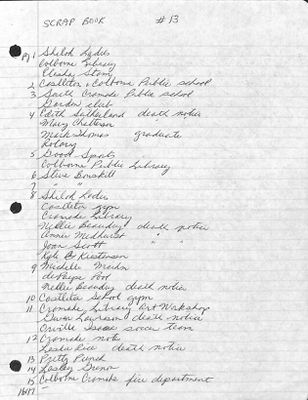 SCRAP BOOK #13
Pg 1 Shiloh Ladies
Colborne Library
Elisha Stam
2 Castleton, Colborne Public school
3 South Cramahe Public school
Garden club
4 Edith Sutherland death notice
Mary Chatterson
Mark Thomas graduate
Rotary
5 Good Sports
Colborne Public Library
6 Steve Bonskill
7 " "
8 Shiloh Ladies
Castleton gym
Cramahe Library
Nellie Beauday death notice
Annie Medhurst "
Joan Scott "
Kyle & Kristensen
9 Michelle
Pool
Nellie Beauday death notice
10 Castleton School gym
11 Cramahe Library Art Workshop
Gwen Lawrson death notice
Orville Isaac soccer team
12 Cramahe note
Leslie Rice death notice
13 Pretty Punch
14 Lesley
15 Colborne Cramahe fire department
16/17 "